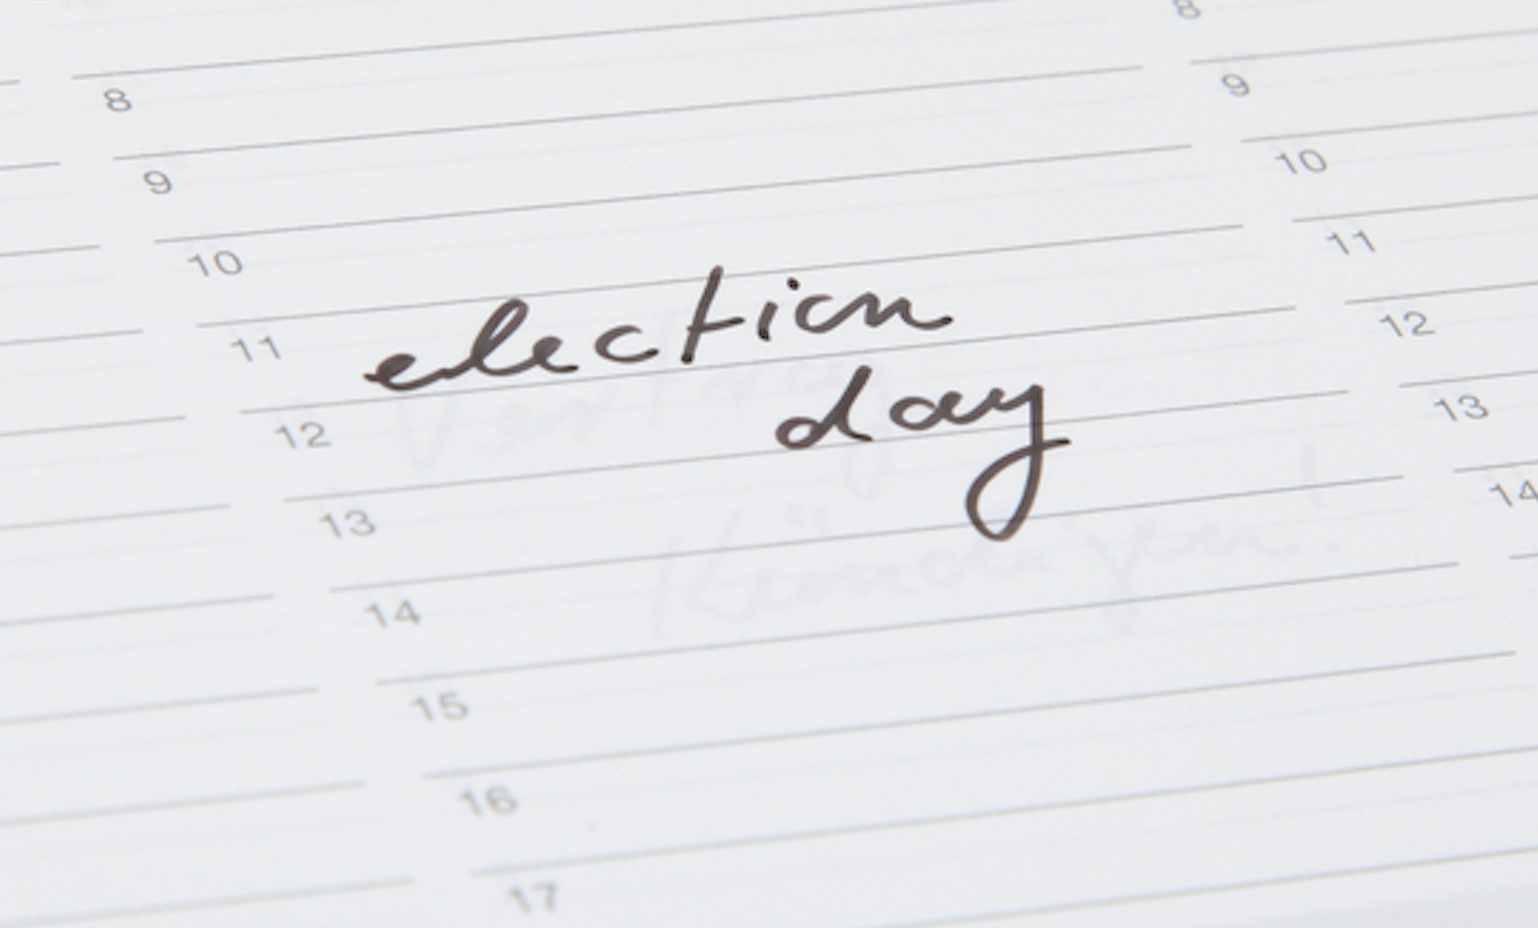 8
8
9
9
10
10
11
11
election
12
day
12
13
13
14
14
15
16
17